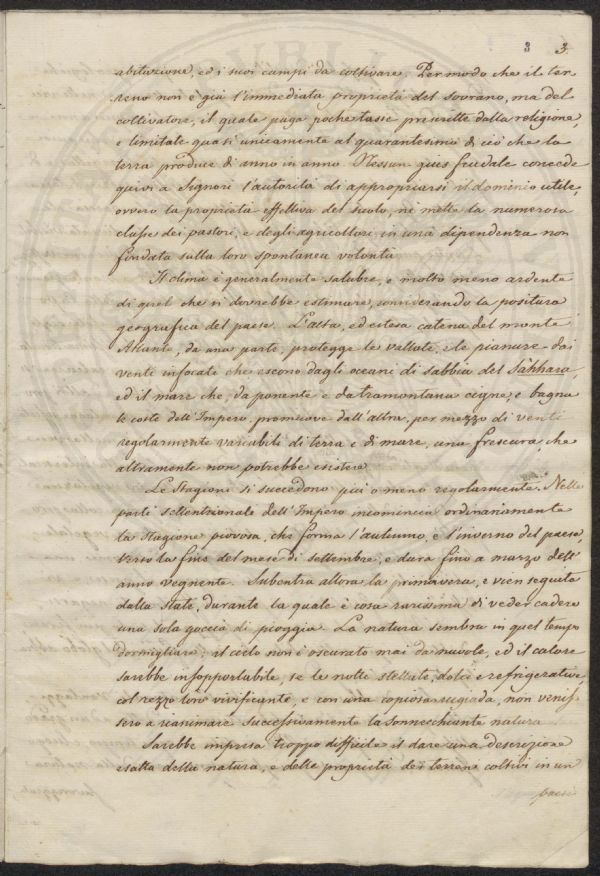 3 3.
abitazione, ed i suoi campi da coltivare. Per modo che il ter-
reno non è già l'immediata proprietà del sovrano, ma del
coltivatore, il quale paga poche tasse prescritte dalla religione,
e limitate quasi unicamente al quarantesimo di ciò che la
terra produce di anno in anno. Nessun gius feudale concede
quivi a Signori l'autorità di appropriarsi il dominio utile,
ovvero la proprietà effettiva del suolo, nè mette la numerosa
classe dei pastori, e degli agricoltori in una dipendenza non
fondata sulla loro spontanea volontà.
Il clima è generalmente salubre, e molto meno ardente
di quel che si dovrebbe estimare, considerando la positura
geografica del paese. L'alta, ed estesa catena del monte
Atlante, da una parte, protegge le vallate, e le pianure dai
venti infocati che escono dagli oceani di sabbia del Sàhhara,
ed il mare che, da ponente e da tramontana cigne, e bagna
le coste dell'Impero, promuove dall'altra, per mezzo di venti
regolarmente variabili di terra e di mare, una frescura, che
altramente non potrebbe esistere.
Le Stagioni si succedono più o meno regolarmente. Nella
parte settentrionale dell'Impero incomincia ordinariamente
la Stagione piovosa, che forma l'autunno, e l'inverno del paese,
verso la fine del mese di settembre, e dura fino a marzo dell'
anno vegnente. Subentra allora la primavera, e vien seguita
dalla state, durante la quale è cosa rarissima di veder cadere
una sola goccia di pioggia. La natura sembra in quel tempo
dormigliare; il cielo non è oscurato mai da nuvole, ed il calore
sarebbe insopportabile, se le notti stellate, dolci e refrigerative
col rezzo loro vivificante, e con una copiosa rugiada, non venis-
sero a rianimare successivamente la sonnecchiante natura.
Sarebbe impresa troppo difficile il dare una descrizione
esatta della natura, e delle proprietà dei terreni coltivi in un
paese